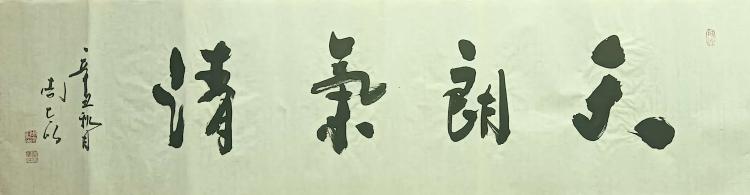 天朗氣清
辛丑秋月